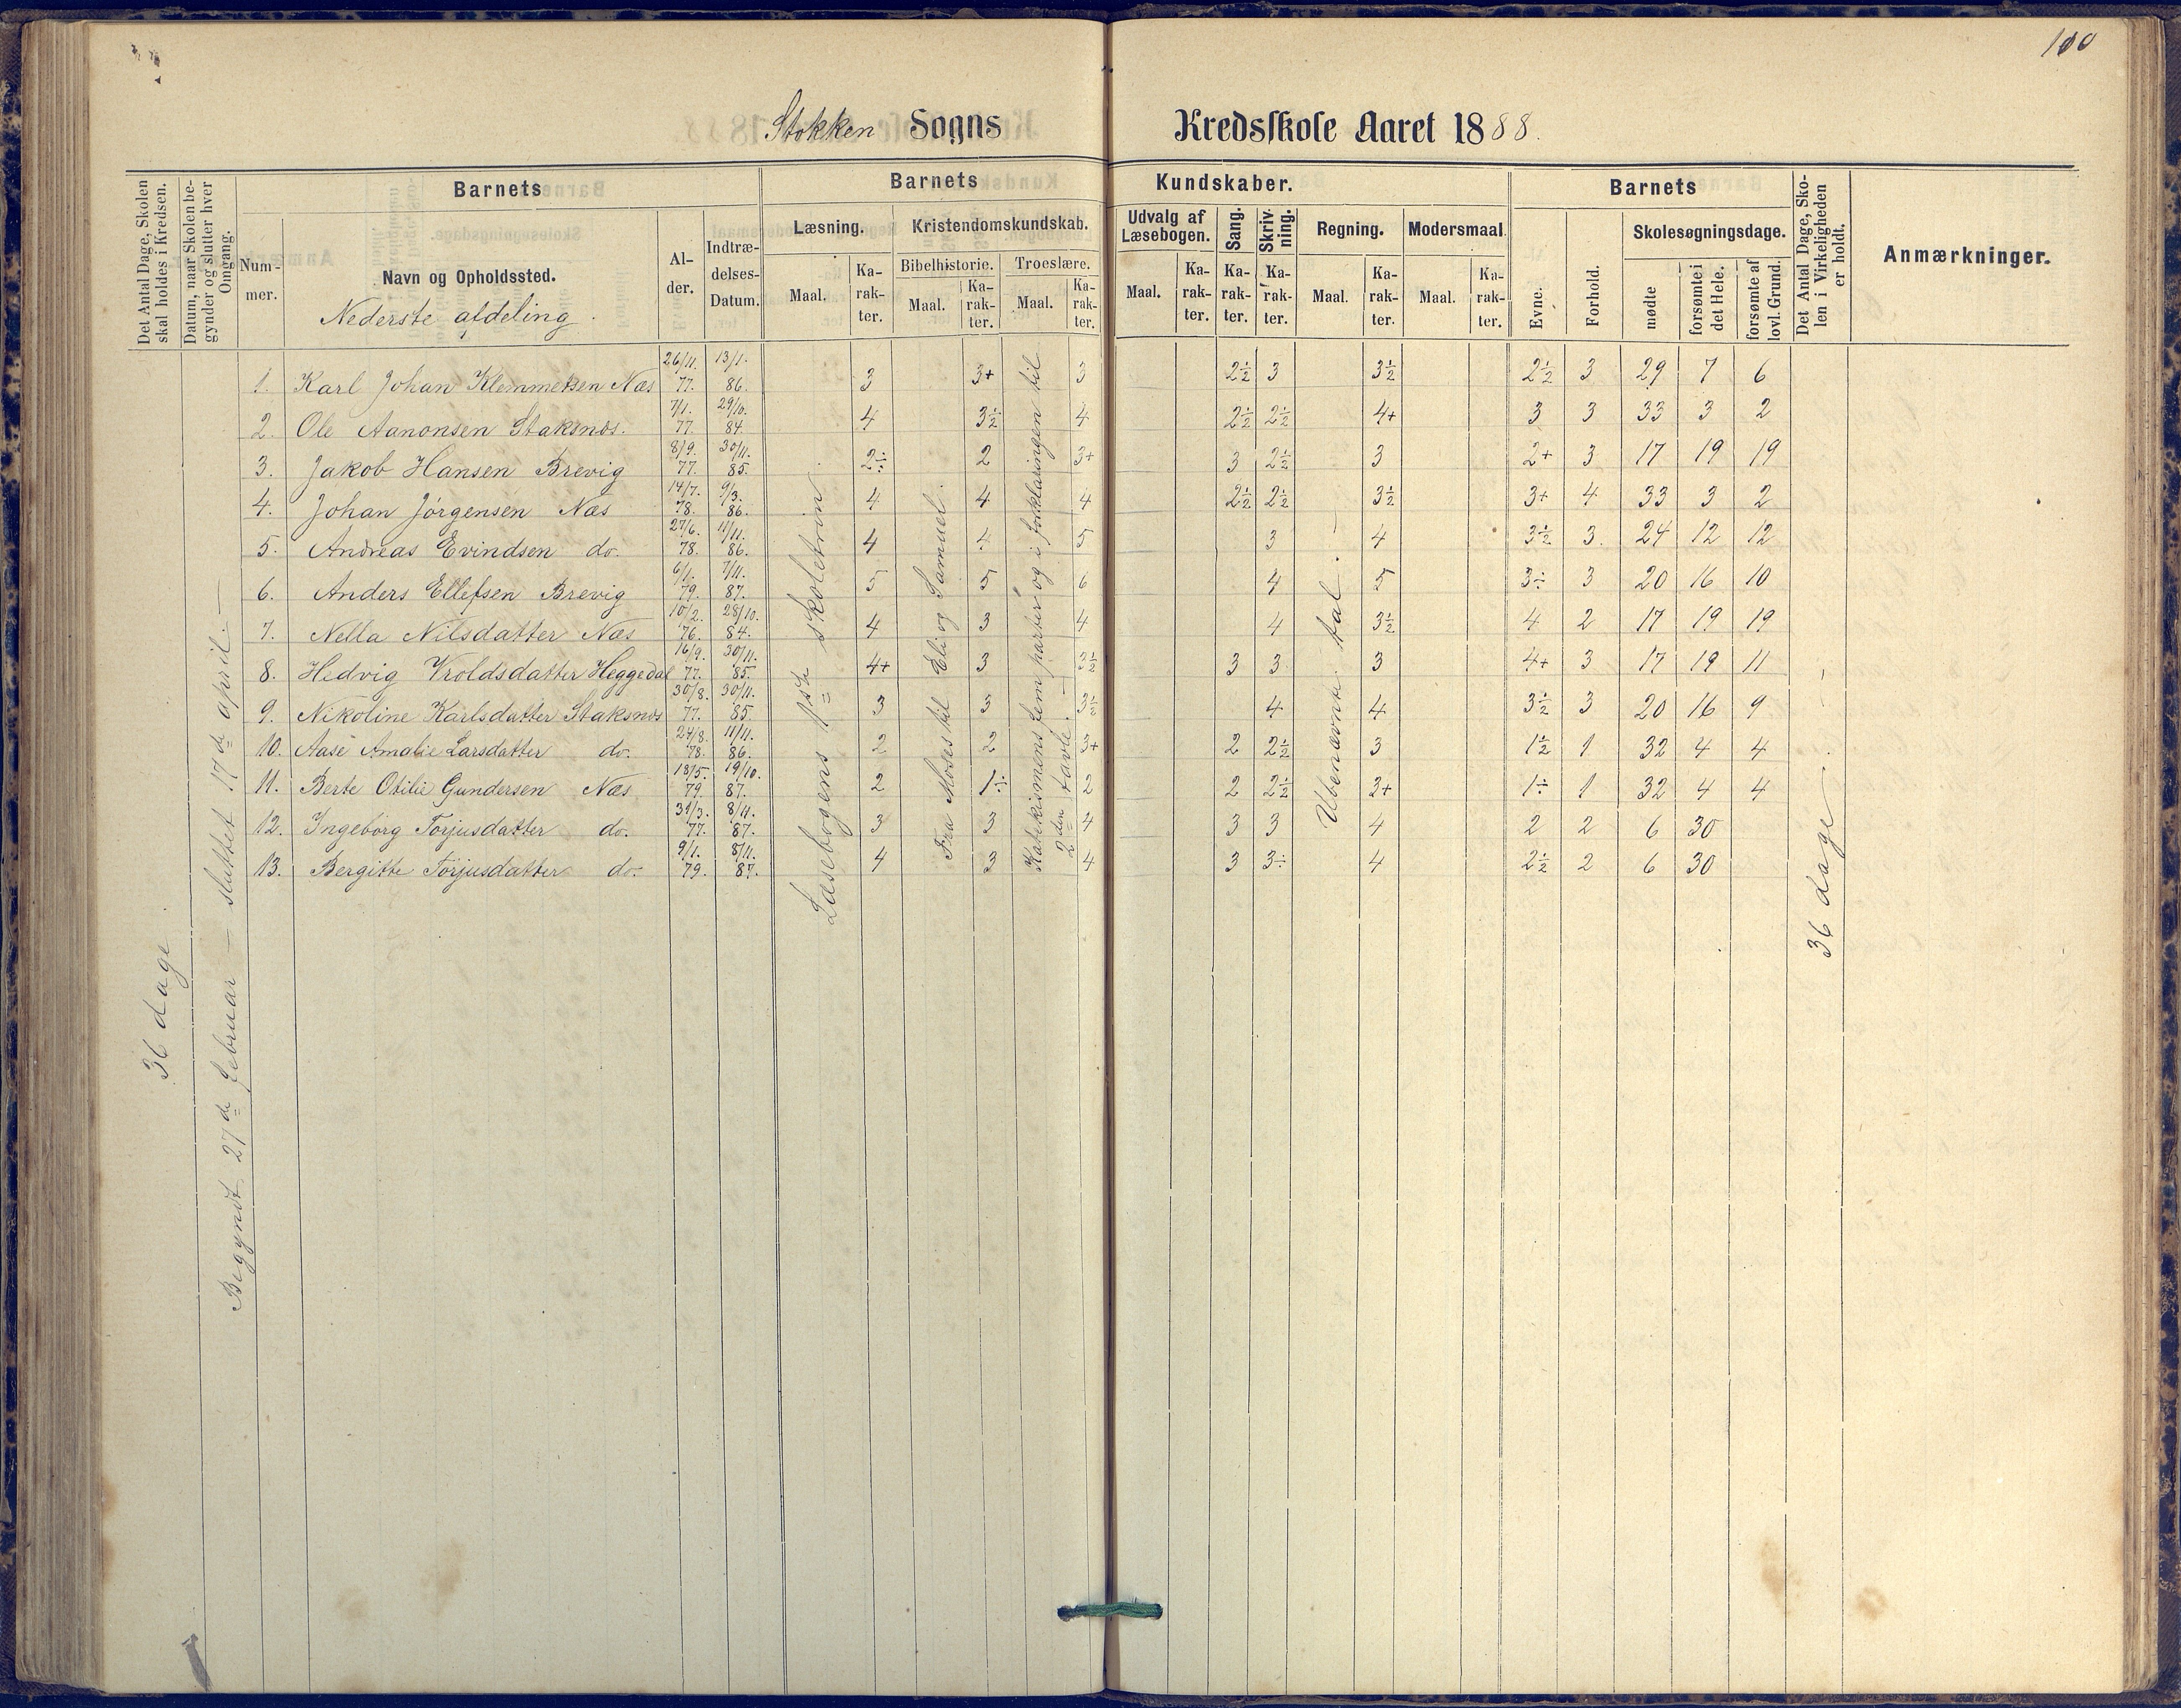 100
Stokken Sogns Kredsskole Aaret 1888.
Det Antal Dage, Skolen skal holdes i Kredsen.
Datum, naar Skolen begynder og slutter hver Omgang.
Barnets
Nummer.
Navn og Opholdssted.
Nederste afdeling.
Alder.
Indtrædelses-Datum.
Barnets Kundskaber.
Læsning.
Maal.
Karakter.
Kristendomskundskab.
Bibelhistorie.
Maal.
Karakter.
Troeslære.
Maal.
Karakter.
Udvalg af Læsebogen.
Maal.
Karakter.
Sang.
Karakter.
Skrivning.
Karakter.
Regning.
Maal.
Karakter.
Modersmaal.
Maal.
Karakter.
Barnets
Evne.
Forhold.
Skolesøgningsdage.
mødte
forsømte i det Hele.
forsømte af lovl. Grund.
Det Antal Dage, Skolen i Virkeligheden er holdt.
Anmærkninger.
36 dage
Begyndt 27de februar — sluttet 17de april. —
Læsebogens 1ste skoletrin
Fra Moses til Eli og Samuel.
Katekismens fem parter og i forklaringen til 2den tavle. —
Ubenævnte tal. —
36 dage —
1. Karl Johan Klemmetsen Næs 26/11. 77. 13/1. 86. 3 3+ 3 2½ 3 3½ 2½ 3 29 7 6
2. Ole Aanonsen Staksnæs. 7/1. 77. 29/10. 84. 4 3½ 4 2½ 2½ 4+ 3 3 33 3 2
3. Jakob Hansen Brevig 8/9. 77. 30/11. 85. 2÷ 2 3+ 3 2½ 3 2+ 3 17 19 19
4. Johan Jørgensen Næs 14/7. 78. 9/3. 86. 4 4 4 2½ 2½ 3½ 3+ 4 33 3 2
5. Andreas Evindsen do. 27/6. 78. 11/11. 86. 4 4 5 3 4 3½ 3. 24 12 12
6. Anders Ellefsen Brevig 6/1. 79. 7/11. 87. 5 5 6 4 5 3÷ 3 20 16 10
7. Nella Nilsdatter Næs 10/2. 76. 28/10. 84. 4 3 4 4 3½ 4 2 17 19 19
8. Hedvig Vroldsdatter Heggedal 16/9. 77. 30/11. 85. 4+ 3 3½ 3 3 3 4+ 3 17 19 11
9. Nikoline Karlsdatter Staksnæs 30/8. 77. 30/11. 85. 3 3 3½ 4 4 3½ 3 20 16 9
10. Aase Amalie Larsdatter do. 24/8. 78. 11/11. 86. 2 2 3+ 2 2½ 3 1½ 1 32 4 4
11. Berte Otilie Gundersen Næs 18/5. 79. 19/10. 87. 2 1÷ 2 2 2½ 3+ 1÷ 1 32 4 4
12. Ingebørg Torjusdatter do. 31/3. 77. 8/11. 87. 3 3 4 3 3 4 2 2 6 30
13. Bergitte Torjusdatter do. 9/1. 79. 8/11. 87. 4 3 4 3 3÷ 4 2½ 2 6 30